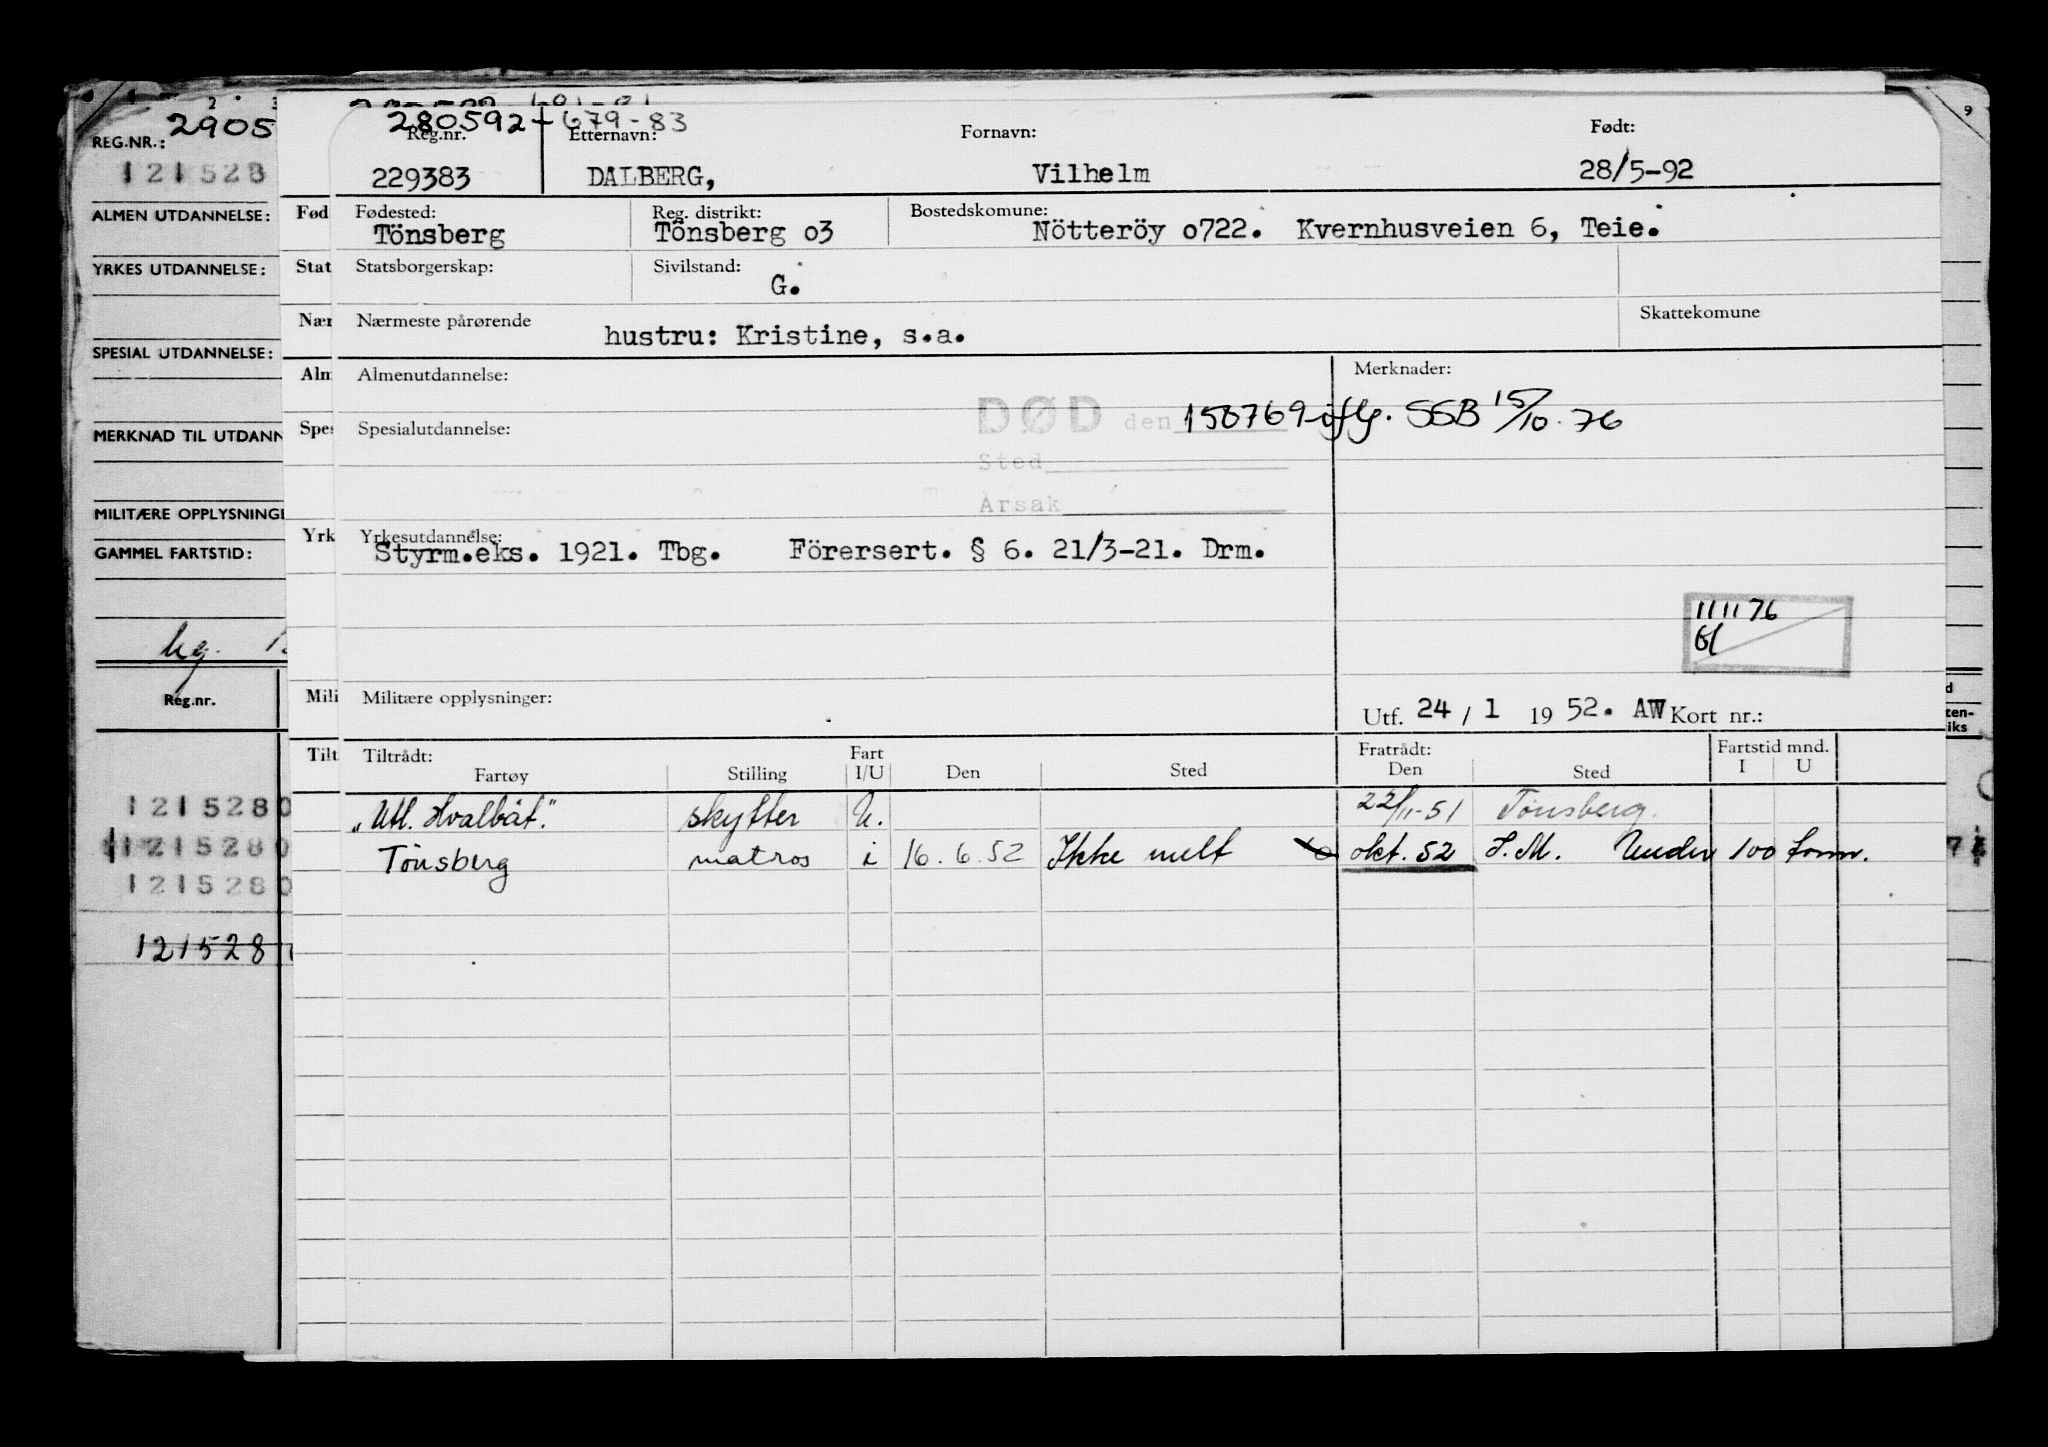 2 3
9
REG.NR.: 2905
121528
ALMEN UTDANNELSE:
YRKES UTDANNELSE:
SPESIAL UTDANNELSE:
MERKNAD TIL UTDANN
MILITÆRE OPPLYSNING
GAMMEL FARTSTID:
Reg.nr.
1215280
1215280
1215280
121528
Fød
Stat
Nær
Alm
Spes
Yrk
Mili
Tilt
280592-679-83
Reg.nr. Etternavn: Fornavn: Født:
229383 DALBERG, Vilhelm 28/5-92
Fødested: Reg. distrikt: Bostedskomune:
Tönsberg Tönsberg o3 Nötteröy o722. Kvernhusveien 6, Teie.
Statsborgerskap: Sivilstand:
G.
Nærmeste pårørende Skattekomune
hustru: Kristine, s.a.
Almenutdannelse: Merknader:
DØD den 150769 iflg. SSB 15/10.76
Spesialutdannelse:
Sted
Årsak
Yrkesutdannelse:
Styrm.eks. 1921. Tbg. Förersert. § 6. 21/3-21. Drm.
111176
Militære opplysninger:
Utf. 24 / 1 19 52. AW Kort nr.:
Tiltrådt: Fart Fratrådt: Fartstid mnd.
Fartøy Stilling I/U Den Sted Den Sted I U
"Utl. Hvalbåt." skytter U. 22/11-51 Tönsberg.
Tönsberg matros i 16.6.52 Ikke melt okt. 52 S.M. Under 100 tonn.